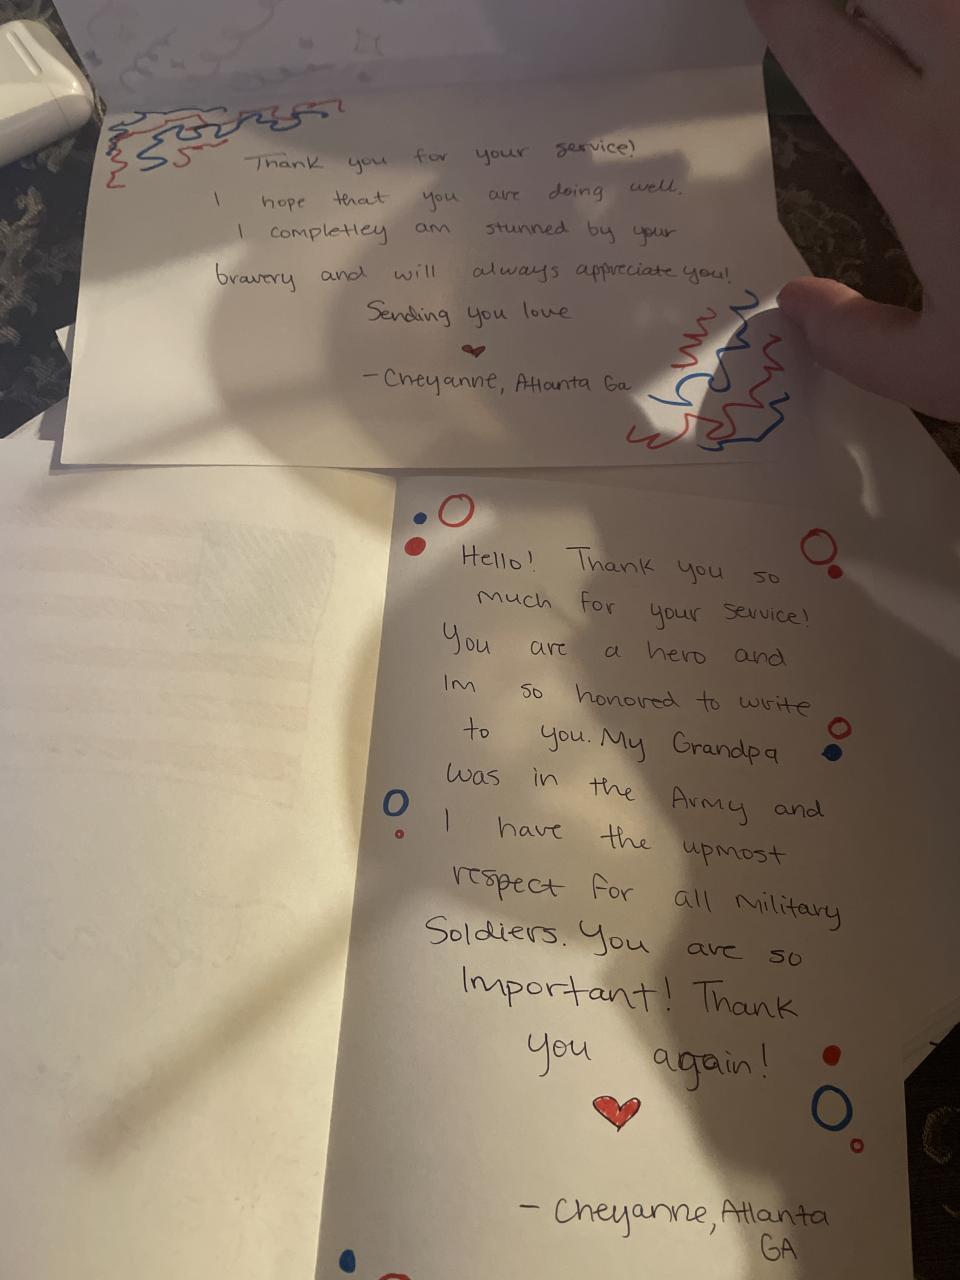 Thank you for your service!
I hope that you are doing well.
I completley am stunned by your
bravery and will always appreciate you!
Sending you love
- Cheyanne, Atlanta Ga
Hello! Thank you so
much for your service!
You are a hero and
Im so honored to write
to you. My Grandpa
was in the Army and
I have the upmost
respect for all Military
Soldiers. You are so
Important! Thank
you again!
- Cheyanne, Atlanta
GA